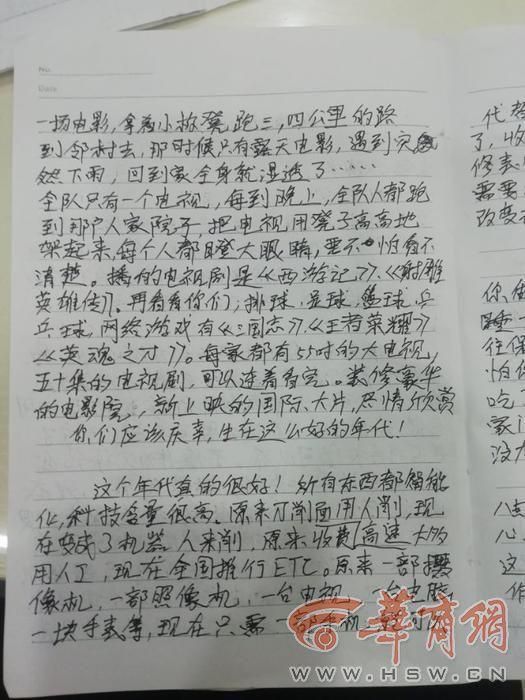 No.
Date
一场电影，拿着小板凳跑三，四公里的路
到邻村去，那时候只有露天电影，遇到突
然下雨，回到家全身就湿透了……
全队只有一个电视，每到晚上，全队人都跑
到那户人家院子，把电视用凳子高高地
架起来，每个人都瞪大眼睛，要不怕看不
清楚。播的电视剧是《西游记》、《射雕
英雄传》。再看看你们，排球、足球、篮球、乒
乓球，网络游戏有《三国志》、《王者荣耀》
《英魂之刃》。每家都有55吋的大电视，
五十集的电视剧，可以连着看完。装修豪华
的电影院，新上映的国际大片，尽情欣赏
你们应该庆幸，生在这么好的年代！
这个年代真的很好！所有东西都智能
化，科技含量很高。原来刀削面用人削，现
在变成了机器人来削，原来收费高速大多
用人工，现在全国推行ETC。原来一部摄
像机，一部照像机，一台电视，一台电脑，
一块手表等，现在只需一部手机
代替
了，收
修表
需要
改变
你
睡一
往保
怕你
吃一
家门
没
八
心
这
作
华商网
WWW.HSW.CN